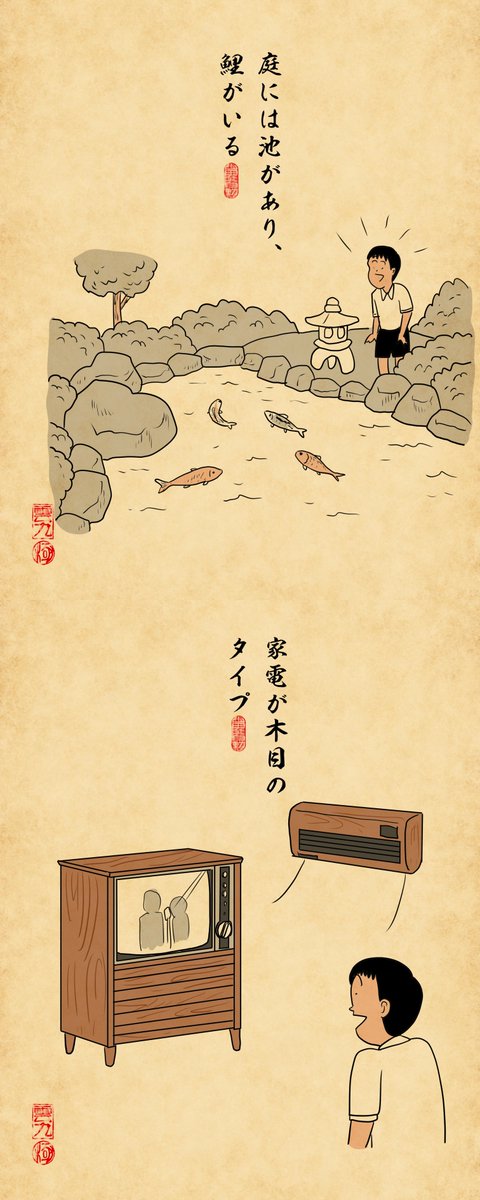 庭には池があり、
鯉がいる
家電が木目の
タイプ